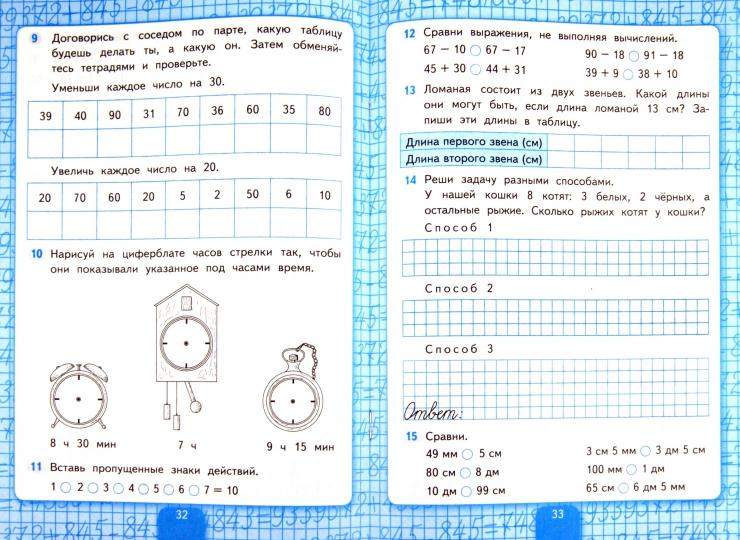 9 Договорись с соседом по парте, какую таблицу
будешь делать ты, а какую он. Затем обменяй-
тесь тетрадями и проверьте.
Уменьши каждое число на 30.
39 40 90 31 70 36 60 35 80
Увеличь каждое число на 20.
20 70 60 20 5 2 50 6 10
10 Нарисуй на циферблате часов стрелки так, чтобы
они показывали указанное под часами время.
8 ч 30 мин 7 ч 9 ч 15 мин
11 Вставь пропущенные знаки действий.
1 ○ 2 ○ 3 ○ 4 ○ 5 ○ 6 ○ 7 = 10
32
12 Сравни выражения, не выполняя вычислений.
67 − 10 ○ 67 − 17 90 − 18 ○ 91 − 18
45 + 30 ○ 44 + 31 39 + 9 ○ 38 + 10
13 Ломаная состоит из двух звеньев. Какой длины
они могут быть, если длина ломаной 13 см? За-
пиши эти длины в таблицу.
Длина первого звена (см)
Длина второго звена (см)
14 Реши задачу разными способами.
У нашей кошки 8 котят: 3 белых, 2 чёрных, а
остальные рыжие. Сколько рыжих котят у кошки?
Способ 1
Способ 2
Способ 3
Ответ:
15 Сравни.
49 мм ○ 5 см 3 см 5 мм ○ 3 дм 5 см
80 см ○ 8 дм 100 мм ○ 1 дм
10 дм ○ 99 см 65 см ○ 6 дм 5 мм
33